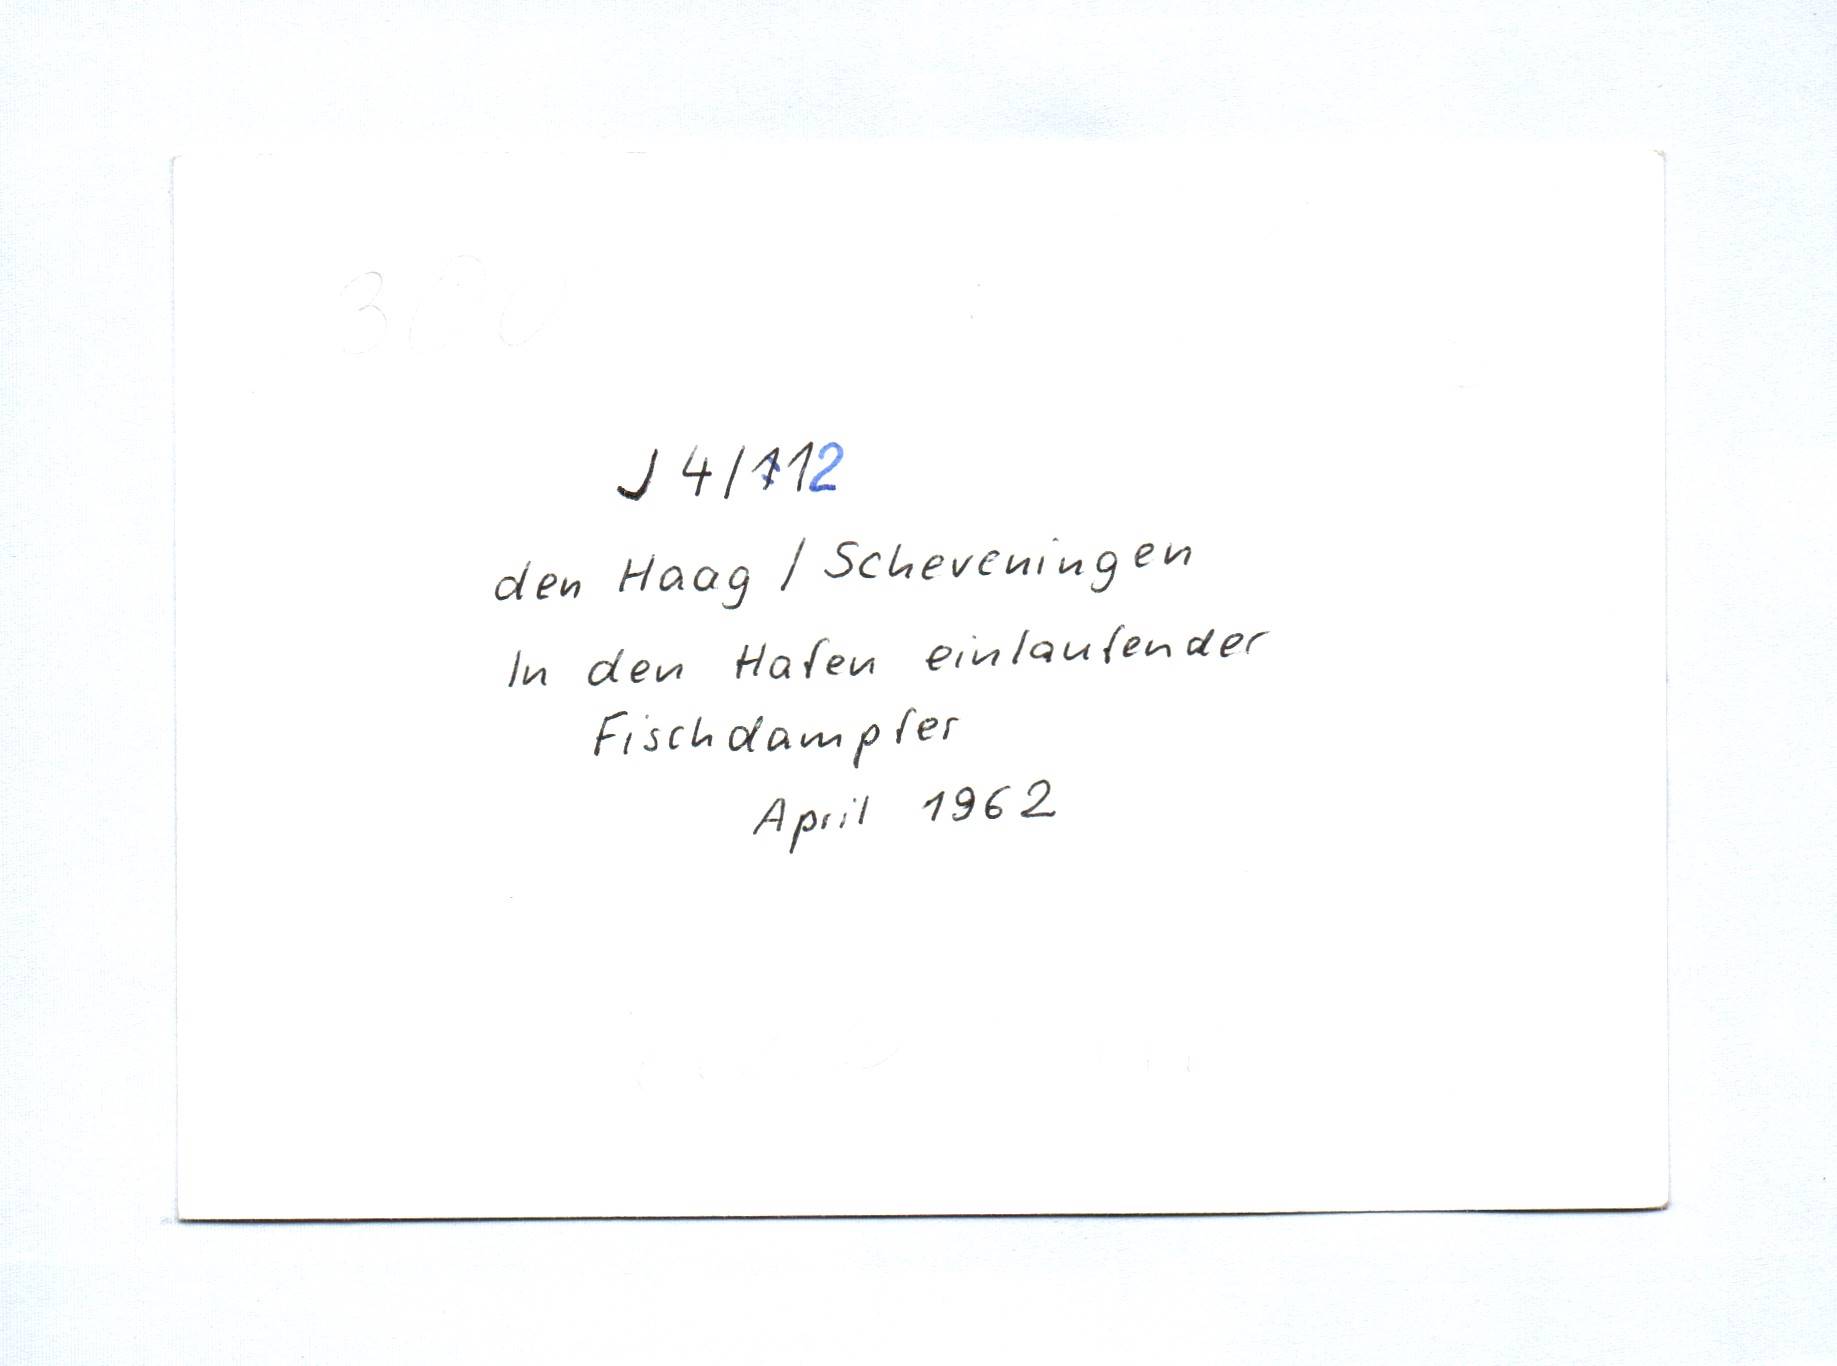 J 4/112
den Haag / Scheveningen
In den Hafen einlaufender
Fischdampfer
April 1962